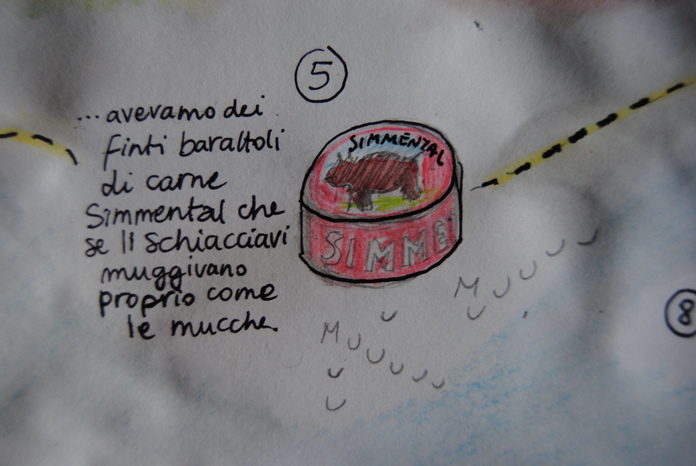 5
...avevamo dei
finti barattoli
di carne
Simmental che
se li schiacciavi
muggivano
proprio come
le mucche.
SIMMENTAL
SIMME
MUUUU
MUUUUUU
8